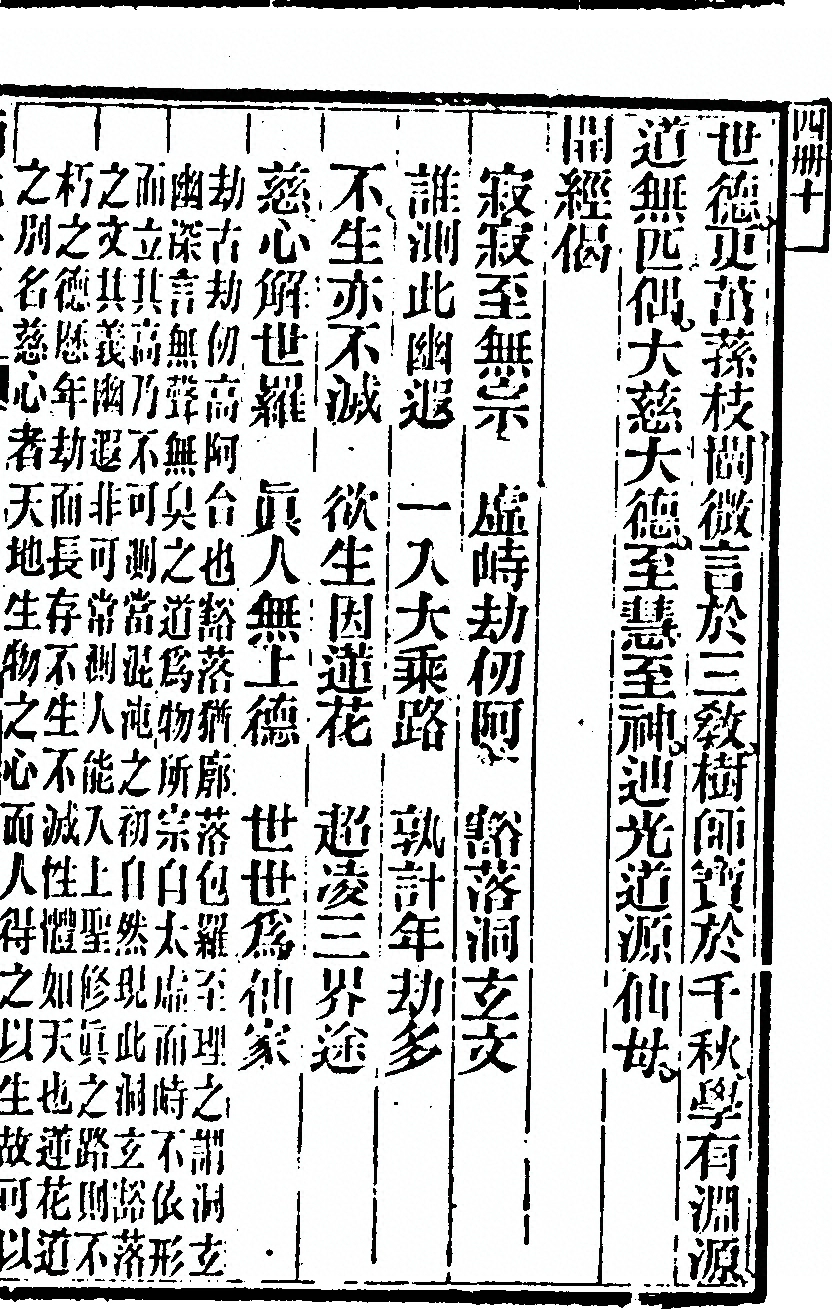 四冊十
世德更茁蓀枝闡微言於三敎樹師寶於千秋學有淵源
道無匹偶大慈大德至慧至神迪光道源仙母
開經偈
寂寂至無宗　虛峙劫仞阿　豁落洞玄文
誰測此幽遐　一入大乘路　孰計年劫多
不生亦不滅　欲生因蓮花　超凌三界途
慈心解世羅　眞人無上德　世世爲仙家
劫古劫仞高阿台也豁落猶廓落包羅至理之謂洞玄
幽深言無聲無臭之道爲物所宗自太虛而峙不依形
而立其高乃不可測當混沌之初自然現此洞玄豁落
之文其義幽遐非可常測人能入上聖修眞之路則不
朽之德歷年劫而長存不生不滅性體如天也蓮花道
之別名慈心者天地生物之心而人得之以生故可以